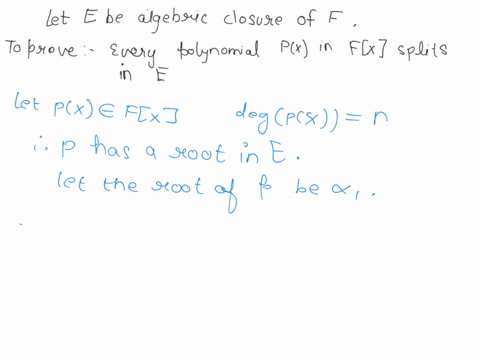 Let E be algebric closure of F.
To prove:- Every polynomial P(x) in F[x] splits
in E
let p(x) ∈ F[x] deg(p(x)) = n
∴ p has a root in E.
let the root of p be α₁.